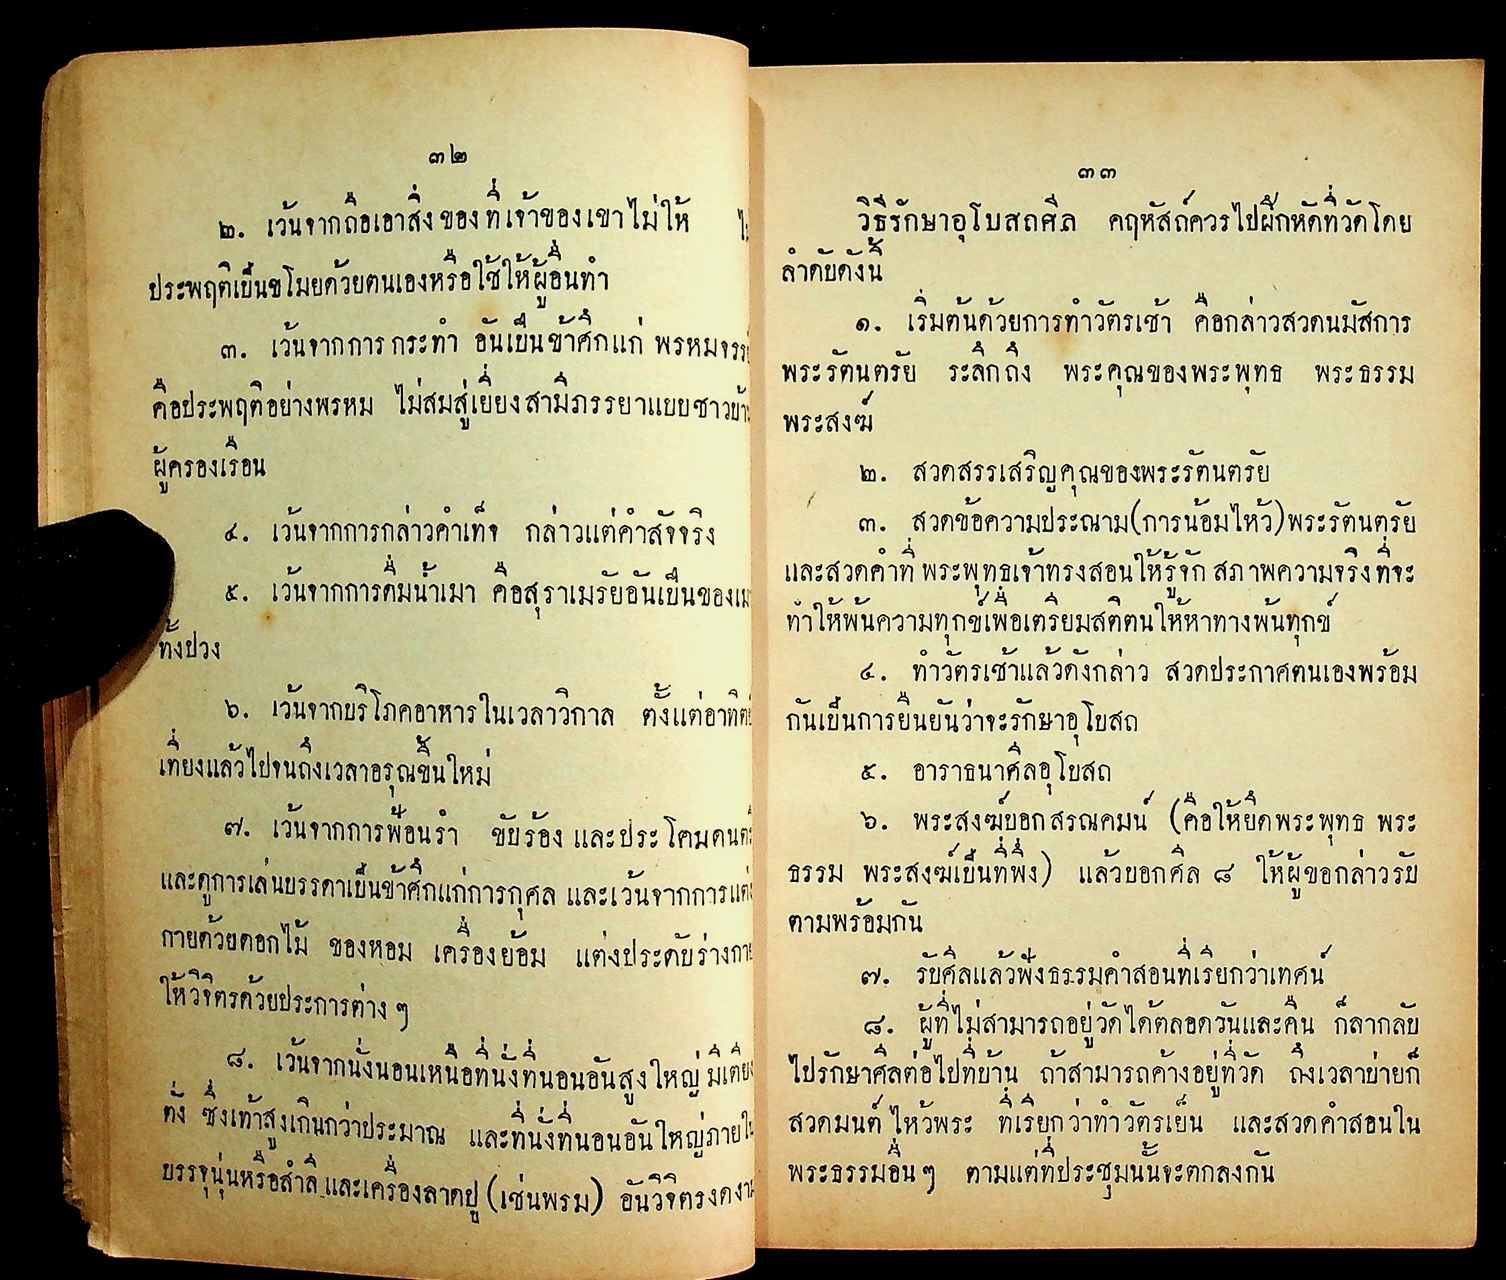 ๓๒
๒. เว้นจากถือเอาสิ่งของที่เจ้าของเขาไม่ให้
ประพฤติเป็นขโมยด้วยตนเองหรือใช้ให้ผู้อื่นทำ
๓. เว้นจากการกระทำ อันเป็นข้าศึกแก่
คือประพฤติอย่างพรหม ไม่สมสู่เยี่ยงสามีภรรยาแบบ
ผู้ครองเรือน
๔. เว้นจากการกล่าวคำเท็จ กล่าวแต่คำสัจจริง
๕. เว้นจากการดื่มน้ำเมา คือสุราเมรัยอันเป็น
ทั้งปวง
๖. เว้นจากบริโภคอาหารในเวลาวิกาล ตั้งแต่
เที่ยงแล้วไปจนถึงเวลาอรุณขึ้นใหม่
๗. เว้นจากการฟ้อนรำ ขับร้อง และประโคม
และดูการเล่นบรรดาเป็นข้าศึกแก่การกุศล และเว้นจากการ
กายด้วยดอกไม้ ของหอม เครื่องย้อม แต่งประดับ
ให้วิจิตรด้วยประการต่าง ๆ
๘. เว้นจากนั่งนอนเหนือที่นั่งที่นอนอันสูงใหญ่
ตั่ง ซึ่งเท้าสูงเกินกว่าประมาณ และที่นั่งที่นอนอันใหญ่
บรรจุนุ่นหรือสำลี และเครื่องลาดปู (เช่นพรม) อันวิจิตร
๓๓
วิธีรักษาอุโบสถศีล คฤหัสถ์ควรไปฝึกหัดที่วัดโดย
ลำดับดังนี้
๑. เริ่มต้นด้วยการทำวัตรเช้า คือกล่าวสวดนมัสการ
พระรัตนตรัย ระลึกถึง พระคุณของพระพุทธ พระธรรม
พระสงฆ์
๒. สวดสรรเสริญคุณของพระรัตนตรัย
๓. สวดข้อความประณาม(การน้อมไหว้)พระรัตนตรัย
และสวดคำที่พระพุทธเจ้าทรงสอนให้รู้จักสภาพความจริงที่จะ
ทำให้พ้นความทุกข์เพื่อเตรียมสติตนให้หาทางพ้นทุกข์
๔. ทำวัตรเช้าแล้วดังกล่าว สวดประกาศตนเองพร้อม
กันเป็นการยืนยันว่าจะรักษาอุโบสถ
๕. อาราธนาศีลอุโบสถ
๖. พระสงฆ์บอกสรณคมน์ (คือให้ยึดพระพุทธ พระ
ธรรม พระสงฆ์เป็นที่พึ่ง) แล้วบอกศีล ๘ ให้ผู้ขอกล่าวรับ
ตามพร้อมกัน
๗. รับศีลแล้วฟังธรรมคำสอนที่เรียกว่าเทศน์
๘. ผู้ที่ไม่สามารถอยู่วัดได้ตลอดวันและคืน ก็ลากลับ
ไปรักษาศีลต่อไปที่บ้าน ถ้าสามารถค้างอยู่ที่วัด ถึงเวลาบ่ายก็
สวดมนต์ไหว้พระ ที่เรียกว่าทำวัตรเย็น และสวดคำสอนใน
พระธรรมอื่น ๆ ตามแต่ที่ประชุมนั้นจะตกลงกัน